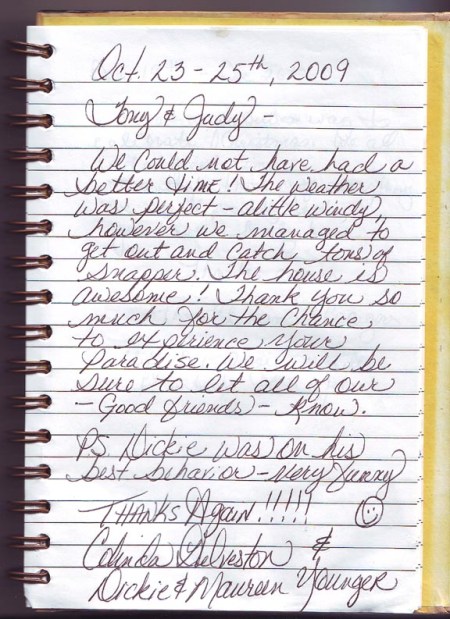 Oct. 23 - 25th, 2009
Tony & Judy -
We could not have had a
better time! The weather
was perfect - alittle windy,
however we managed to
get out and catch tons of
snapper. The house is
awesome! Thank you so
much for the chance
to experience your
Paradise. We will be
sure to let all of our
- Good friends - know.
PS Dickie was on his
best behavior - very funny
THANKS Again!!!!!
&
Dickie & Maureen Younger